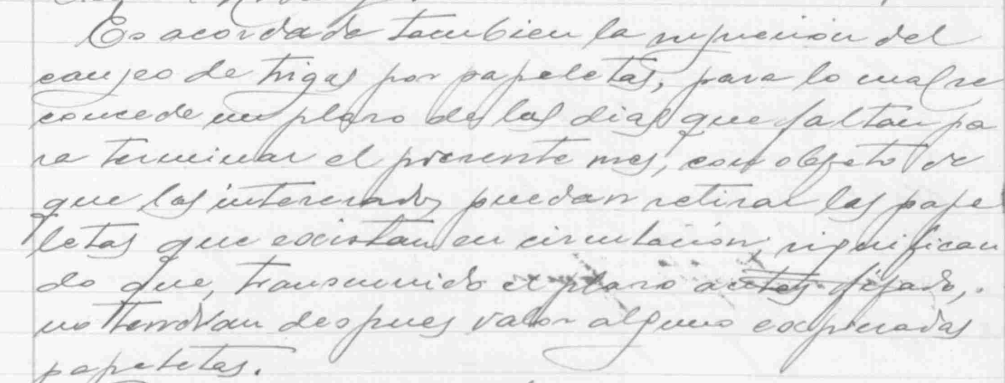 Es acordado tambien la supresion del
canjeo de trigas por papeletas, para lo cual se
concede un plazo de los dias que faltan pa
ra terminar el presente mes, con objeto de
que los interesados puedan retirar las pape
letas que existan en circulación, significan
do que, transcurrido el plazo antes fijado,
no tendran despues valor alguno expresadas
papeletas.